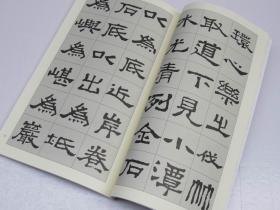 環心樂之伐竹
取道下見小潭
水尤清冽全石
以為底近岸卷
石底以出為坻
為嶼為嵁為巖